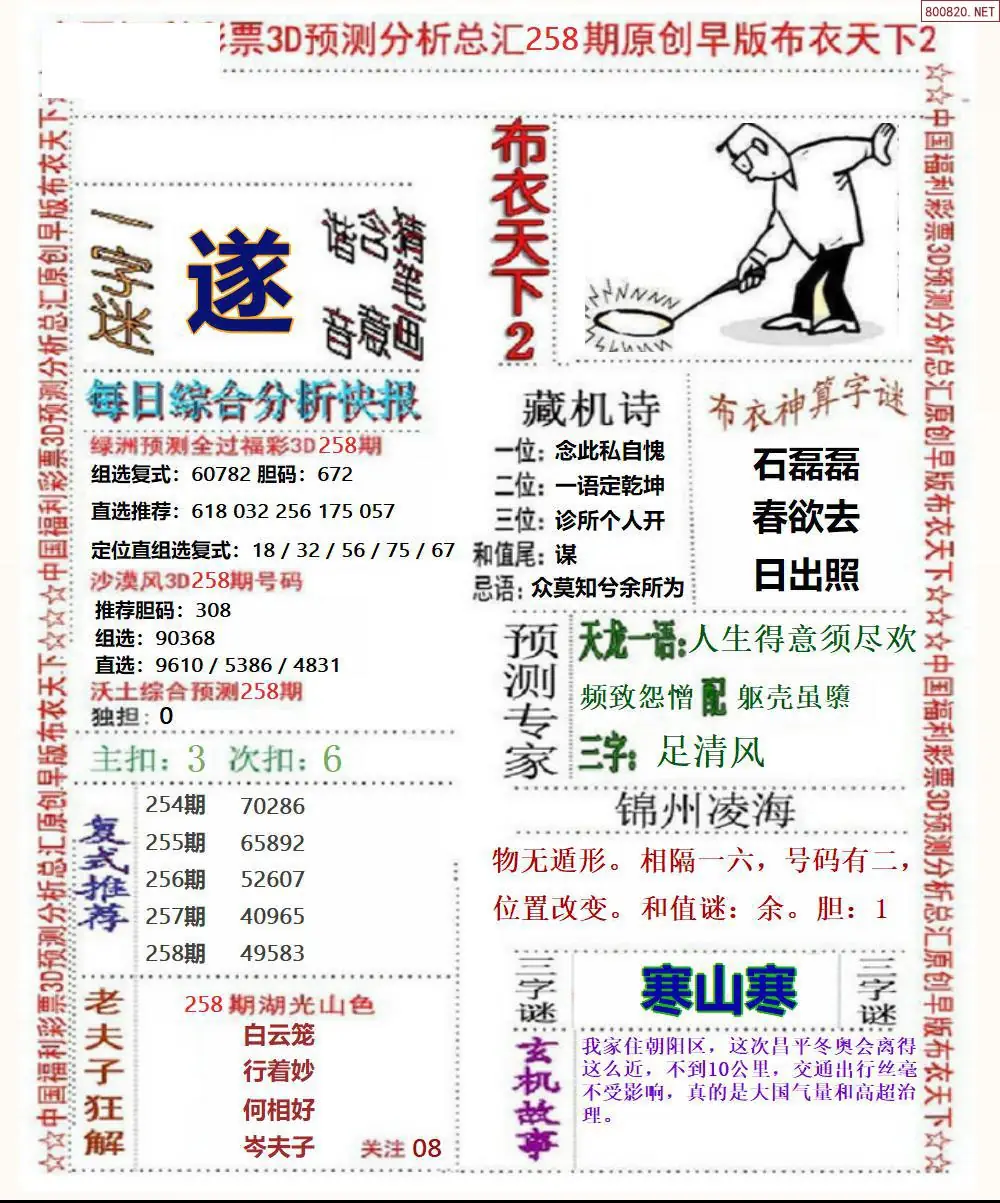 800820.NET
彩票3D预测分析总汇258期原创早版布衣天下2
☆☆中国福利彩票3D预测分析总汇原创早版布衣天下☆☆☆中国福利彩票3D预测分析总汇原创早版布衣天下☆
☆☆中国福利彩票3D预测分析总汇原创早版布衣天下☆☆☆☆中国福利彩票3D预测分析总汇原创早版布衣天下☆☆
一字迷
遂
猜笔画
含意
谐音
布衣天下2
每日综合分析快报
绿洲预测全过福彩3D258期
组选复式：60782 胆码：672
直选推荐：618 032 256 175 057
定位直组选复式：18 / 32 / 56 / 75 / 67
沙漠风3D258期号码
推荐胆码：308
组选：90368
直选：9610 / 5386 / 4831
沃土综合预测258期
独担：0
主扣：3 次扣：6
复式推荐
254期 70286
255期 65892
256期 52607
257期 40965
258期 49583
老夫子狂解
258期湖光山色
白云笼
行着妙
何相好
岑夫子
关注 08
藏机诗
一位：念此私自愧
二位：一语定乾坤
三位：诊所个人开
和值尾：谋
忌语：众莫知兮余所为
布衣神算字谜
石磊磊
春欲去
日出照
预测专家
天龙一语:人生得意须尽欢
频致怨憎 配 躯壳虽隳
三字：足清风
锦州凌海
物无遁形。相隔一六，号码有二，
位置改变。和值谜：余。胆：1
三字谜
寒山寒
三字谜
玄机故事
我家住朝阳区，这次昌平冬奥会离得
这么近，不到10公里，交通出行丝毫
不受影响，真的是大国气量和高超治
理。